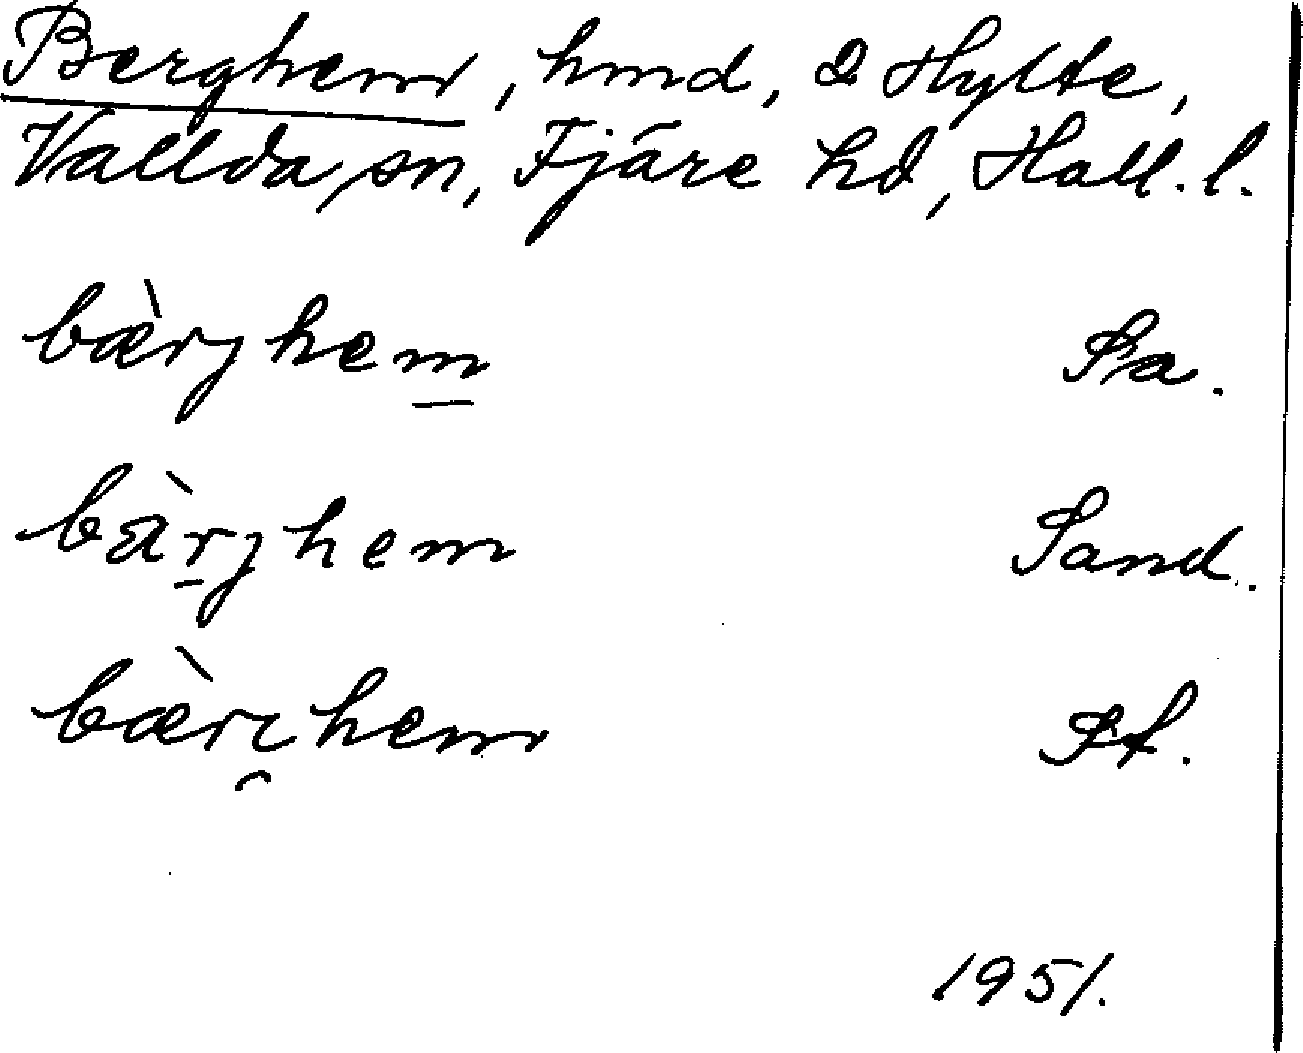 Berghem, hmd, 2 Hylte,
Vallda sn, Fjäre hd, Hall. l.
bæ̀rjhem̲ Sa.
bàr̲jhem Sand.
bæ̀rc̯hem St.
1951.